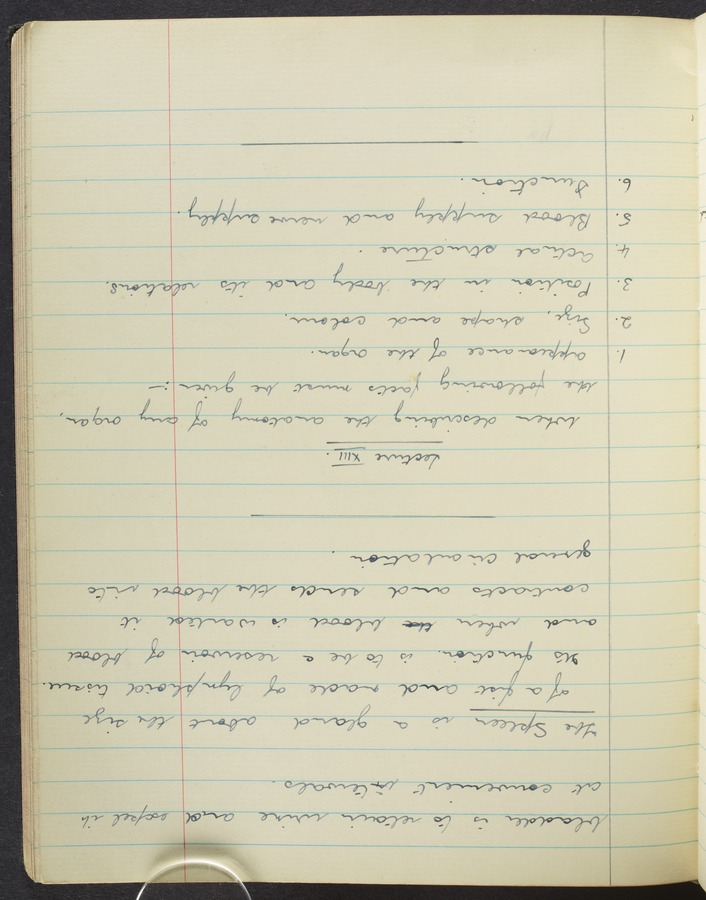 bladder is to retain urine and expel it
at convenient intervals.
The Spleen is a gland about the size
of a fist and made of lymphoid tissue.
Its function is to be a reservoir of blood
and when the blood is wanted it
contracts and sends the blood into
general circulation.
Lecture XIII.
When describing the anatomy of any organ,
the following facts must be given :-
1. appearance of the organ.
2. Size, shape and colour.
3. Position in the body and its relations.
4. Actual structure.
5. Blood supply and nerve supply.
6. Function.